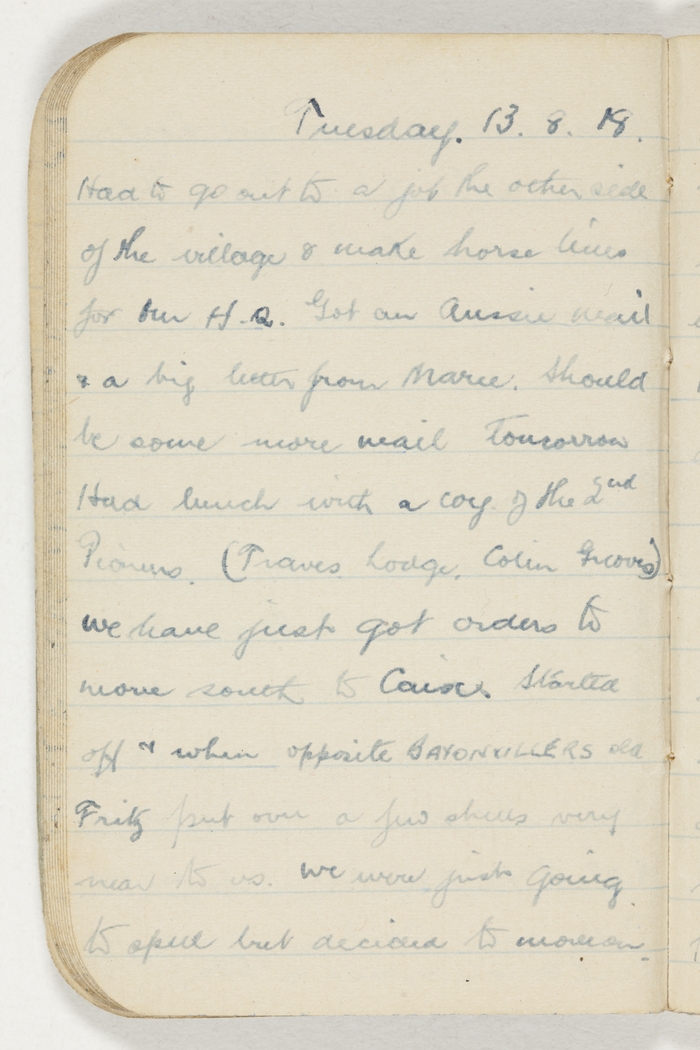 Tuesday. 13. 8. 18.
Had to go out to a job the other side
of the village & make horse lines
for our H.Q. Got an Aussie mail
& a big letter from Marie. Should
be some more mail tomorrow
Had lunch with a coy. of the 2nd
Pioneers. (Travers Lodge, Colin Groves)
we have just got orders to
move south to Caix. Started
off & when opposite BAYONVILLERS old
Fritz put over a few shells very
near to us. We were just going
to spell but decided to move on.